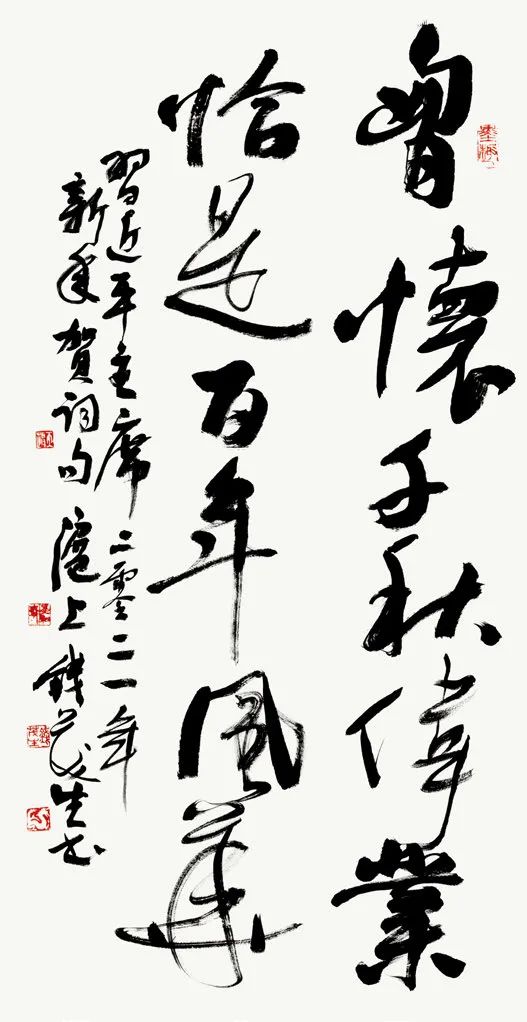 胷懷千秋偉業
恰是百年風華
習近平主席二零二一年
新年賀詞句 滬上 錢茂生書